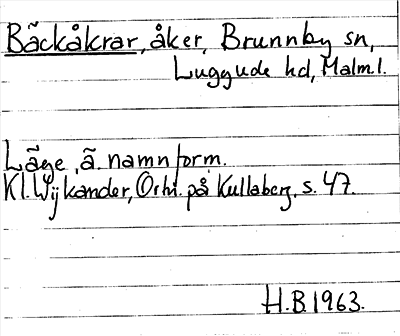 Bäckåkrar, åker, Brunnby sn,
Luggude hd, Malm.l.
Läge, ä. namnform.
Kl. Wijkander, Ortn. på Kullaberg, s. 47.
H.B. 1963.